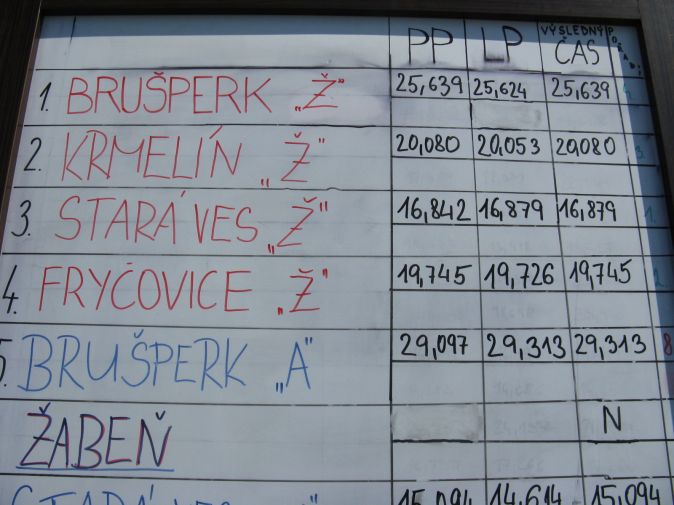 PP LP VÝSLEDNÝ ČAS POŘADÍ
1. BRUŠPERK „Ž" 25,639 25,624 25,639 4.
2. KRMELÍN „Ž" 20,080 20,053 20,080 3.
3. STARÁ VES „Ž" 16,842 16,879 16,879 1.
4. FRYČOVICE „Ž" 19,745 19,726 19,745 2.
5. BRUŠPERK „A" 29,097 29,313 29,313 8
ŽABEŇ N
STARÁ VES 15,094 14,614 15,094